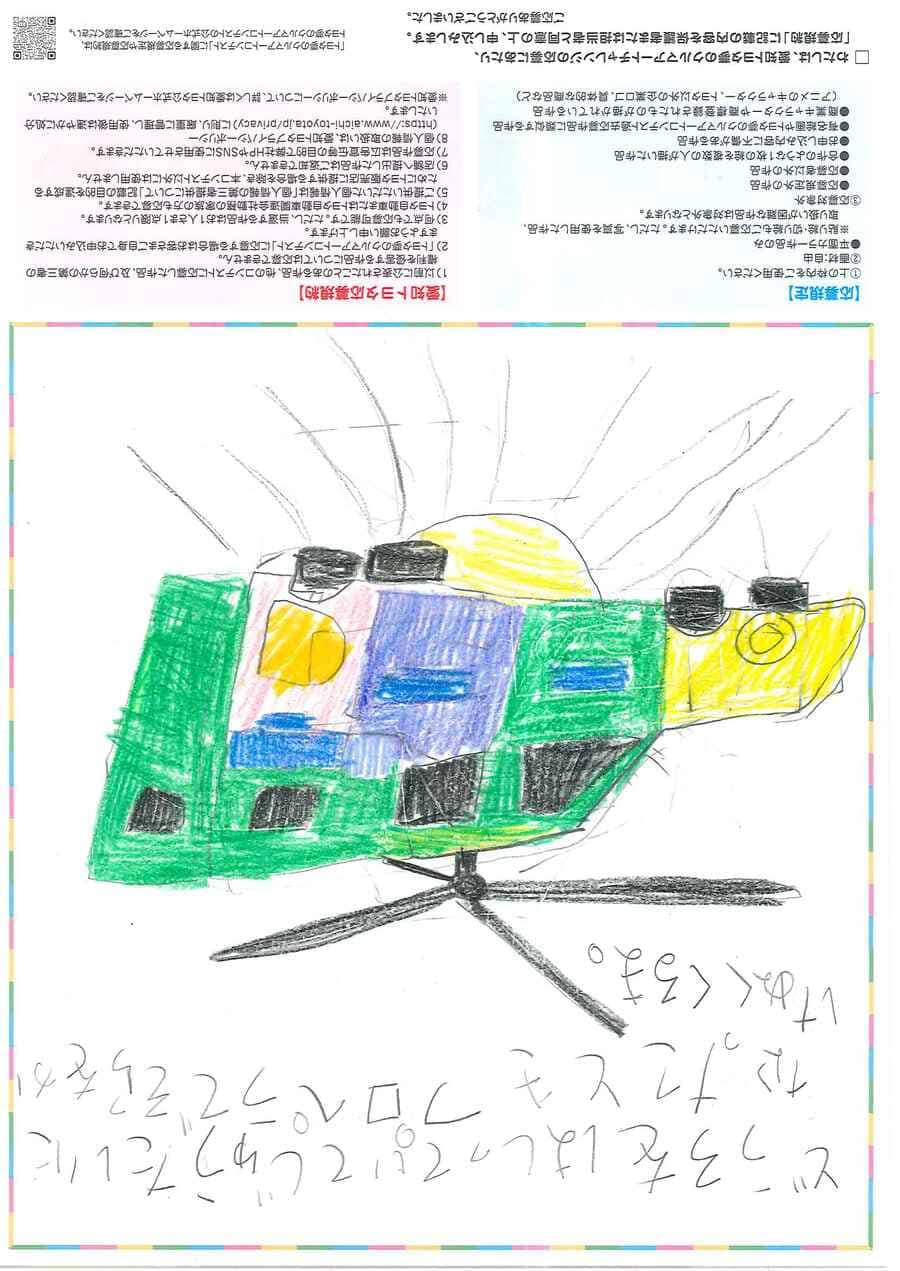 どうろをはしっていてじゅうたいに
なったとき プロペラでそらをか
けぬくくるま。
【応募規定】
①上の枠内をご使用ください。
②画材:自由
●平面カラー作品のみ
※貼り絵・切り絵もご応募いただけます。ただし、写真を使用した作品、
取り扱いが困難な作品は対象外となります。
③応募対象外
●応募規定外の作品
●応募者以外の作品
●合作のような1枚の絵を複数の人が描いた作品
●お申し込み内容に不備がある作品
●有名絵画やトヨタ夢のクルマアートコンテスト過去応募作品に類似する作品
●商業キャラクターや商標登録されたものが描かれている作品
(アニメのキャラクター、トヨタ以外の企業ロゴ、具体的な商品など)
【愛知トヨタ応募規約】
1)以前に公表されたことのある作品、他のコンテストに応募した作品、及び何らかの第三者の
権利を侵害する作品については応募できません。
2)「トヨタ夢のクルマアートコンテスト」に応募する場合はお客さまご自身でお申込みいただき
ますようお願い申し上げます。
3)何点でも応募可能です。ただし、当選する作品はお1人さま1点限りとなります。
4)トヨタ自動車またはトヨタ自動車関連会社勤務の家族の方も応募できます。
5)ご提供いただいた個人情報は「個人情報の第三者提供について」記載の目的を達成する
ためにトヨタ販売店に提供する場合を除き、本コンテスト以外には使用しません。
6)応募・提出した作品はご返却できません。
7)応募作品は広告宣伝等の目的で弊社HPやSNSに使用させていただきます。
8)個人情報の取扱いは、愛知トヨタプライバシーポリシー
(https://www.aichi-toyota.jp/privacy)に則り、厳重に管理し、使用後は速やかに処分
いたします。
※愛知トヨタプライバシーポリシーについて、詳しくは愛知トヨタ公式ホームページをご確認ください。
□わたしは、愛知トヨタ夢のクルマアートチャレンジのご応募にあたり、
「応募規約」に記載の内容を保護者または担当者と同意の上、申し込みします。
ご応募ありがとうございました。
「トヨタ夢のクルマアートコンテスト」に関する応募規定や応募規約は、
トヨタ夢のクルマアートコンテストの公式ホームページをご確認ください。